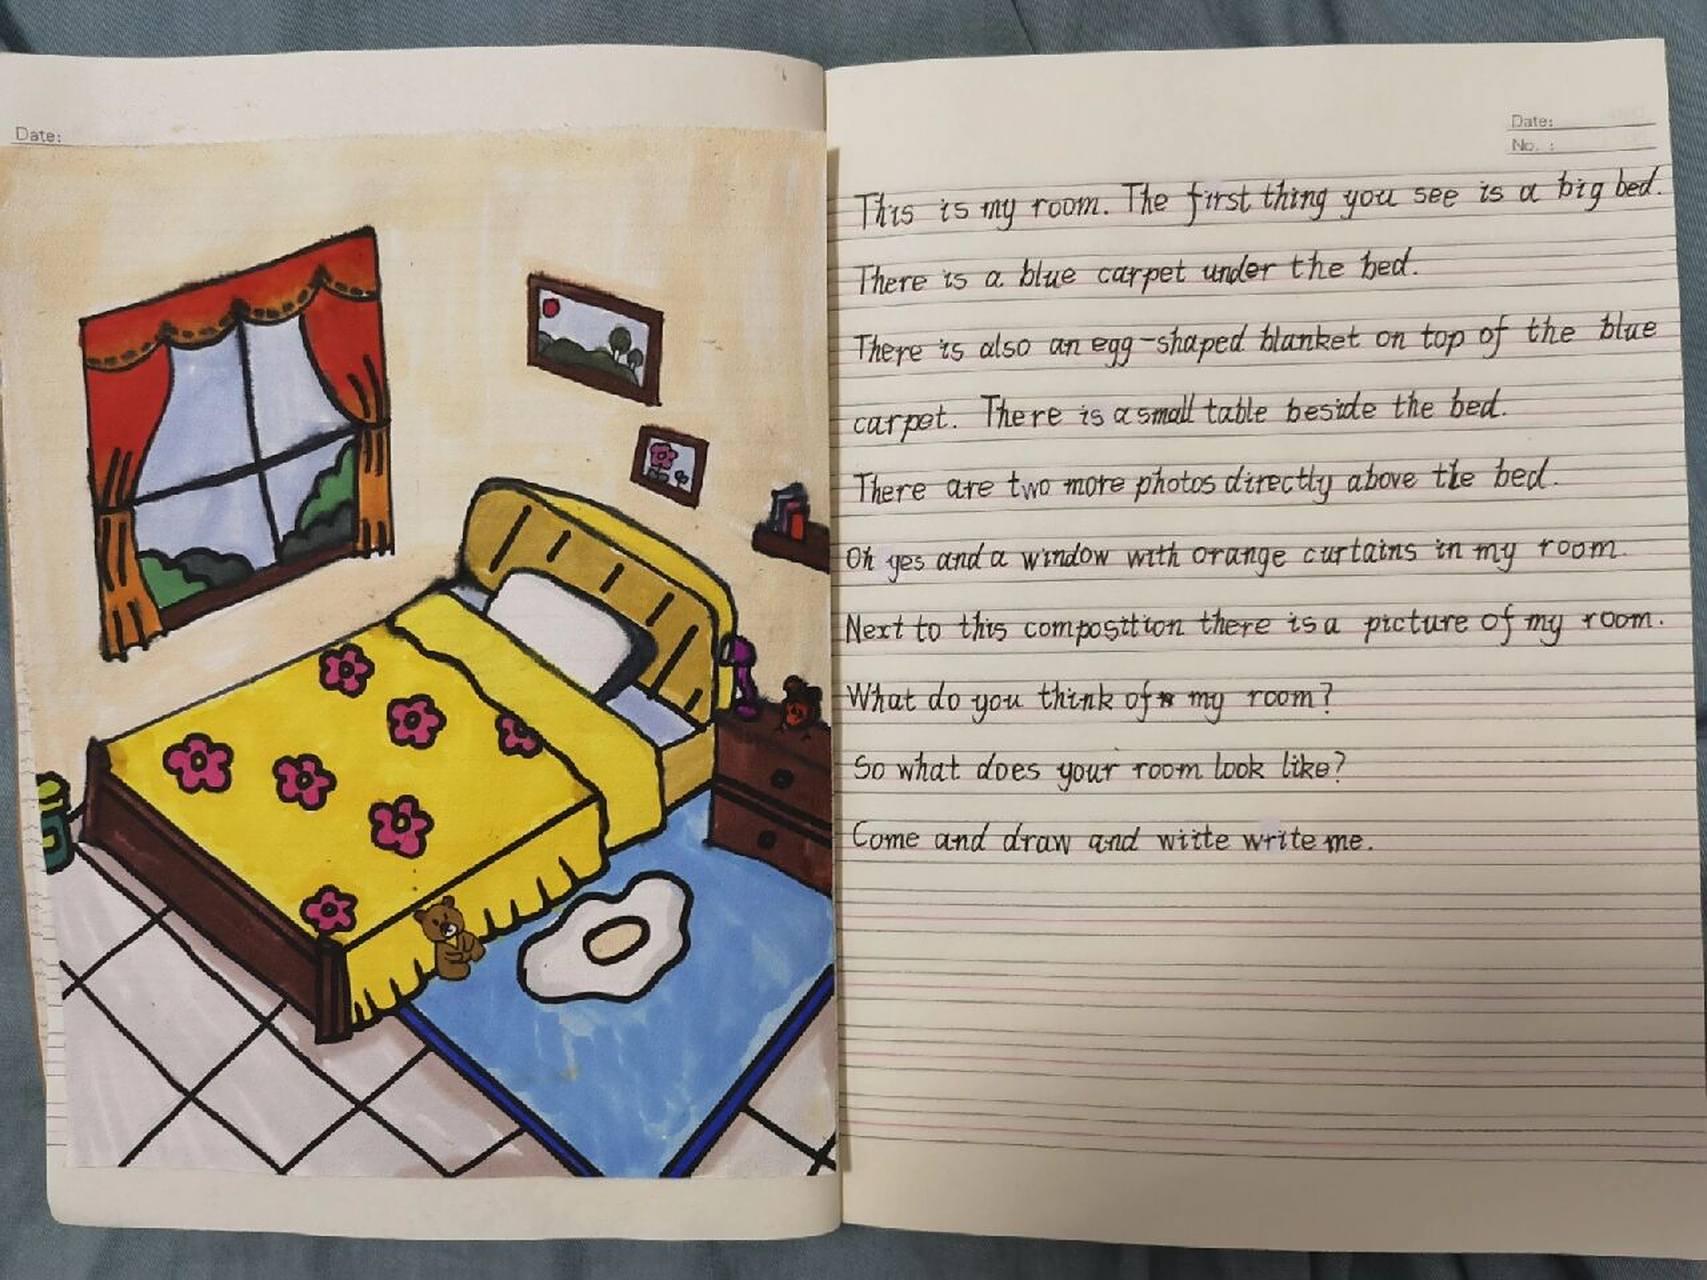 Date:
Date:
No. :
This is my room. The first thing you see is a big bed.
There is a blue carpet under the bed.
There is also an egg-shaped blanket on top of the blue
carpet. There is a small table beside the bed.
There are two more photos directly above the bed.
Oh yes and a window with orange curtains in my room.
Next to this composition there is a picture of my room.
What do you think of my room?
So what does your room look like?
Come and draw and witte write me.